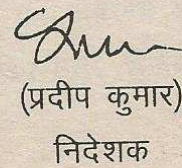 (प्रदीप कुमार)
निदेशक